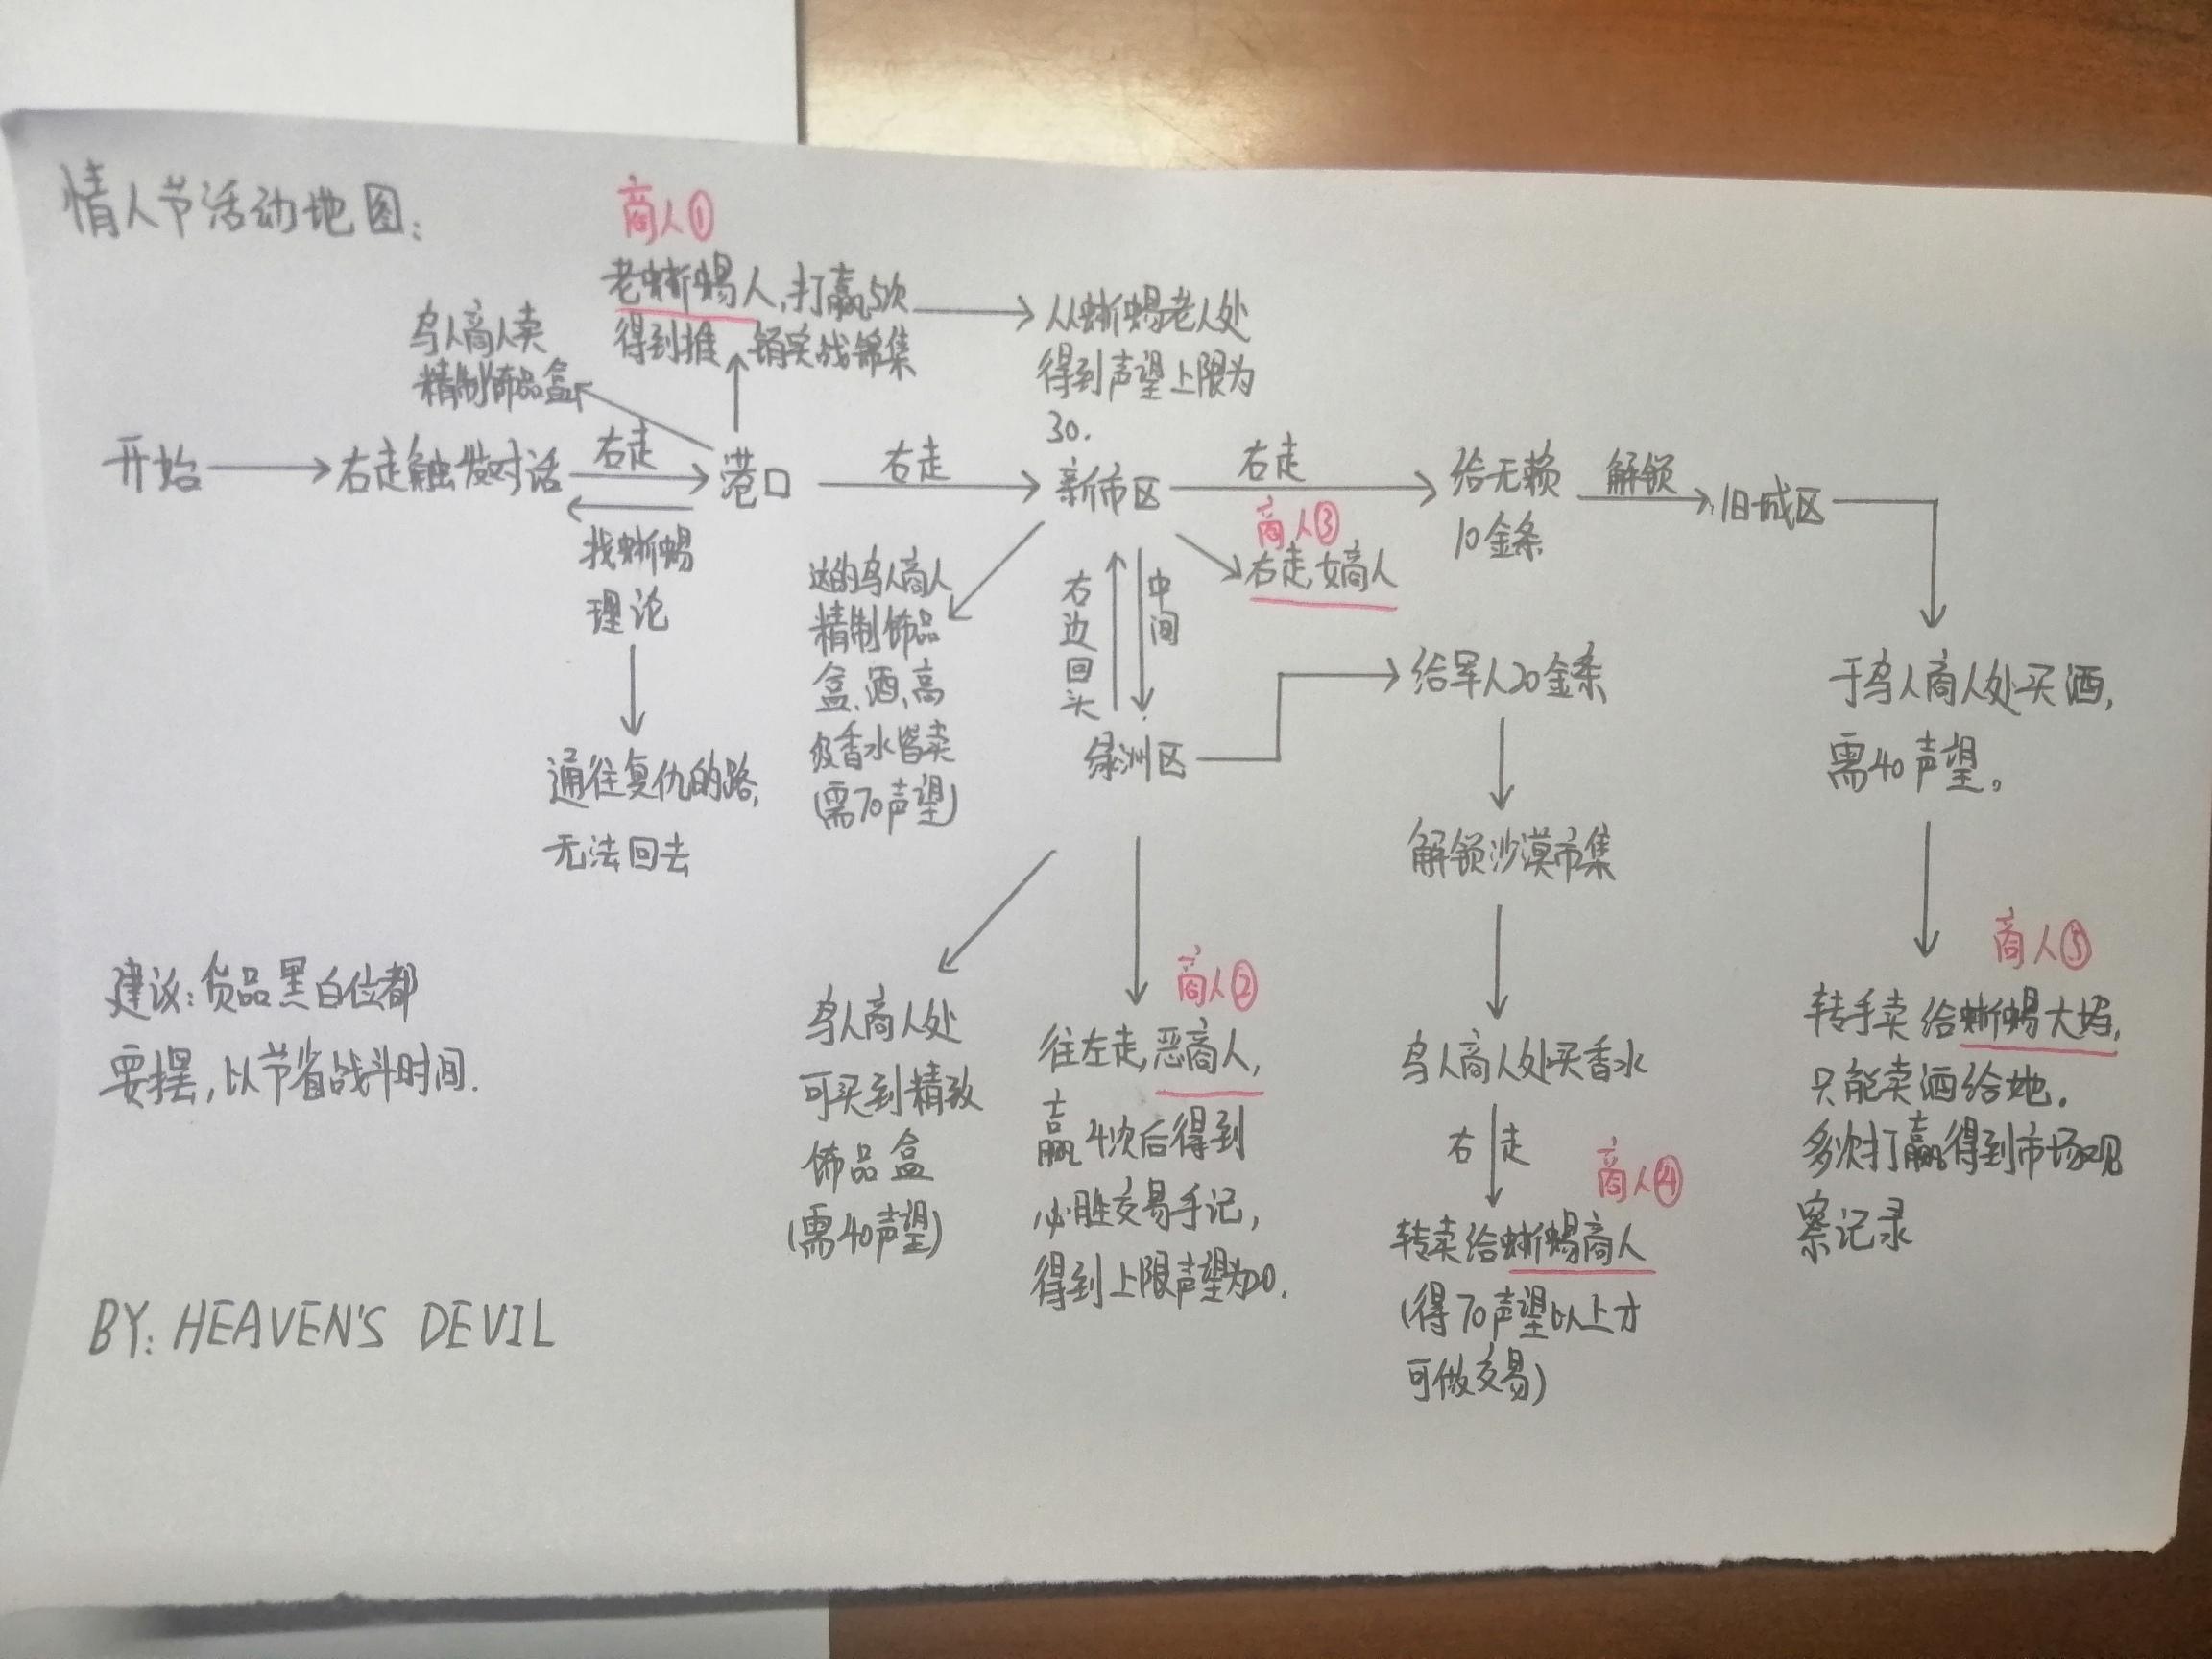 情人节活动地图:
商人①
老蜥蜴人,打赢5次
得到推销实战锦集
从蜥蜴老人处
得到声望上限为
30.
鸟人商人卖
精制饰品盒
开始
右走触发对话
右走
港口
右走
新市区
右走
给无赖
10金条
解锁
旧城区
找蜥蜴
理论
通往复仇的路,
无法回去
这的鸟人商人
精制饰品
盒、酒,高
级香水皆卖
(需70声望)
右边回头
中间
商人③
右走,女商人
绿洲区
给军人20金条
解锁沙漠市集
于鸟人商人处买酒,
需40声望。
鸟人商人处
可买到精致
饰品盒
(需40声望)
商人②
往左走,恶商人,
赢4次后得到
必胜交易手记,
得到上限声望为20.
鸟人商人处买香水
右走
商人④
转卖给蜥蜴商人
(得70声望以上才
可做交易)
商人⑤
转手卖给蜥蜴大妈,
只能卖酒给她.
多次打赢得到市场观
察记录
建议:货品黑白位都
要摆,以节省战斗时间.
BY: HEAVEN'S DEVIL